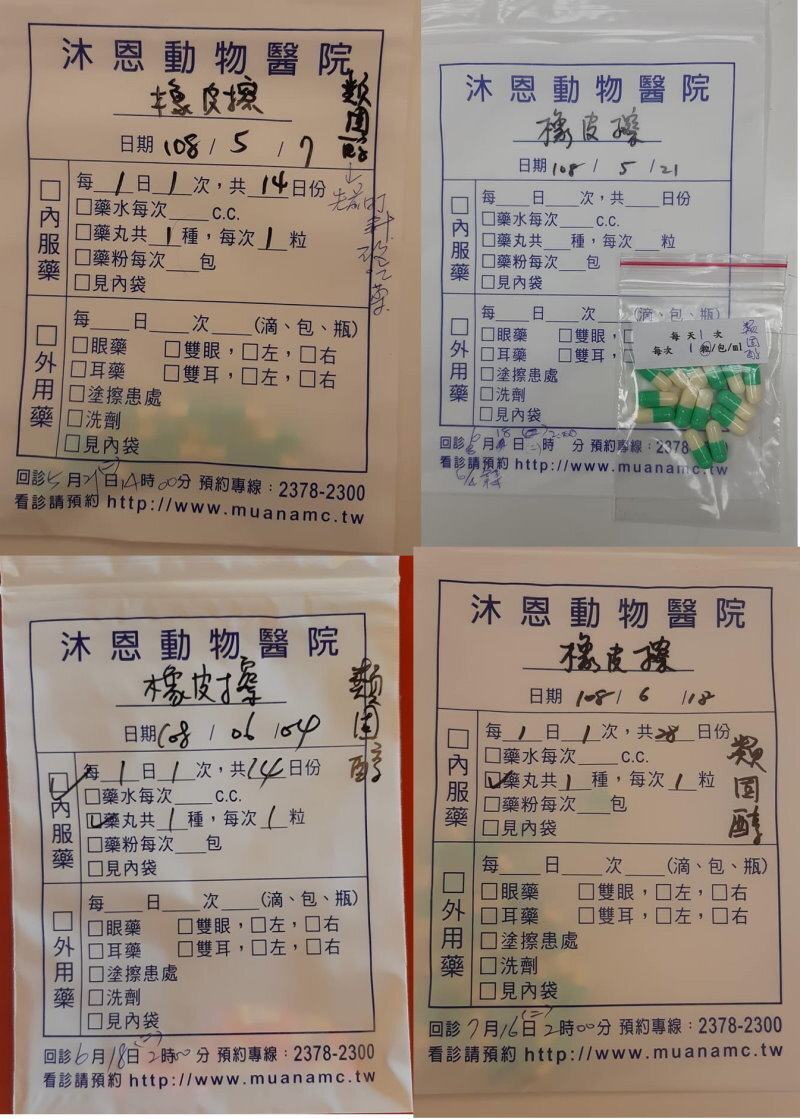 沐恩動物醫院
橡皮擦
類固醇
日期 108 / 5 / 7
內服藥
每 1 日 1 次，共 14 日份
藥水每次 c.c.
藥丸共 1 種，每次 1 粒
藥粉每次 包
見內袋
外用藥
每 日 次 (滴、包、瓶)
眼藥 雙眼，左，右
耳藥 雙耳，左，右
塗擦患處
洗劑
見內袋
回診 5 月 21 日 14 時 00 分 預約專線：2378-2300
看診請預約 http://www.muanamc.tw
沐恩動物醫院
橡皮擦
日期 108 / 5 / 21
內服藥
每 日 次，共 日份
藥水每次 c.c.
藥丸共 種，每次 粒
藥粉每次 包
見內袋
外用藥
每 日 次 (滴、包、瓶)
眼藥 雙眼，
耳藥 雙耳，
塗擦患處
洗劑
見內袋
每天 1 次
每次 1 粒/包/ml
類固醇
回診 6 月 18 日 時 分 預約專線：2378
看診請預約 http://www.muanamc.tw
沐恩動物醫院
橡皮擦
類固醇
日期 108 / 06 / 04
內服藥
每 1 日 1 次，共 14 日份
藥水每次 c.c.
藥丸共 1 種，每次 1 粒
藥粉每次 包
見內袋
外用藥
每 日 次 (滴、包、瓶)
眼藥 雙眼，左，右
耳藥 雙耳，左，右
塗擦患處
洗劑
見內袋
回診 6 月 18 日 (二) 2 時 00 分 預約專線：2378-2300
看診請預約 http://www.muanamc.tw
沐恩動物醫院
橡皮擦
日期 108 / 6 / 18
內服藥
每 1 日 1 次，共 28 日份
藥水每次 c.c.
藥丸共 1 種，每次 1 粒
藥粉每次 包
見內袋
類固醇
外用藥
每 日 次 (滴、包、瓶)
眼藥 雙眼，左，右
耳藥 雙耳，左，右
塗擦患處
洗劑
見內袋
回診 7 月 16 日 (二) 2 時 00 分 預約專線：2378-2300
看診請預約 http://www.muanamc.tw